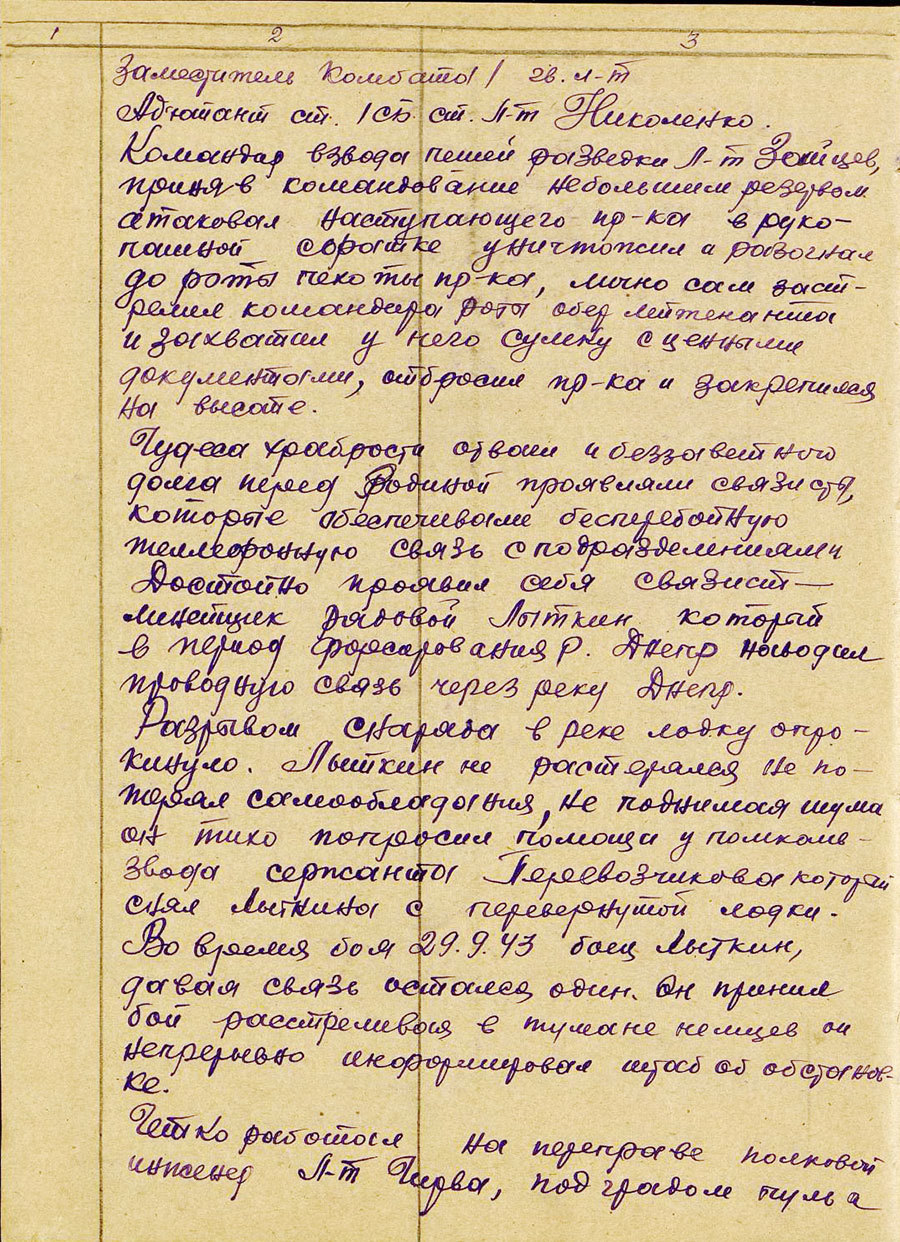 1 2 3
Заместитель Комбата 1 гв. л-т
Адютант ст. 1 сб ст. Л-т Николенко.
Командир взвода пешей разведки Л-т Зайцев,
приняв командование небольшим резервом
атаковал наступающего пр-ка в руко-
пашной схватке уничтожил и разогнал
до роты пехоты пр-ка, лично сам заст-
релил командира роты обер лейтенанта
и захватил у него сумку с ценными
документами, отбросил пр-ка и закрепился
на высоте.
Чудеса храбрости отваги и беззаветного
долга перед Родиной проявляли связисты,
которые обеспечивали бесперебойную
теллефонную связь с подразделениями
Достойно проявил себя связист—
линейщик рядовой Лыткин который
в период форсирования р. Днепр наводил
проводную связь через реку Днепр.
Разрывом снаряда в реке лодку опро-
кинуло. Лыткин не растерялся не по-
терял самообладания, не поднимая шума
он тихо попросил помощи у помкомв-
звода сержанта Перевозчикова который
снял Лыткина с перевернутой лодки.
Во время боя 29.9.43 боец Лыткин,
давая связь остался один. Он принял
бой расстреливая в тумане немцев он
непрерывно информировал штаб об обстанов-
ке.
Четко работал на переправе полковой
инженер Л-т Чирва, под градом пуль а